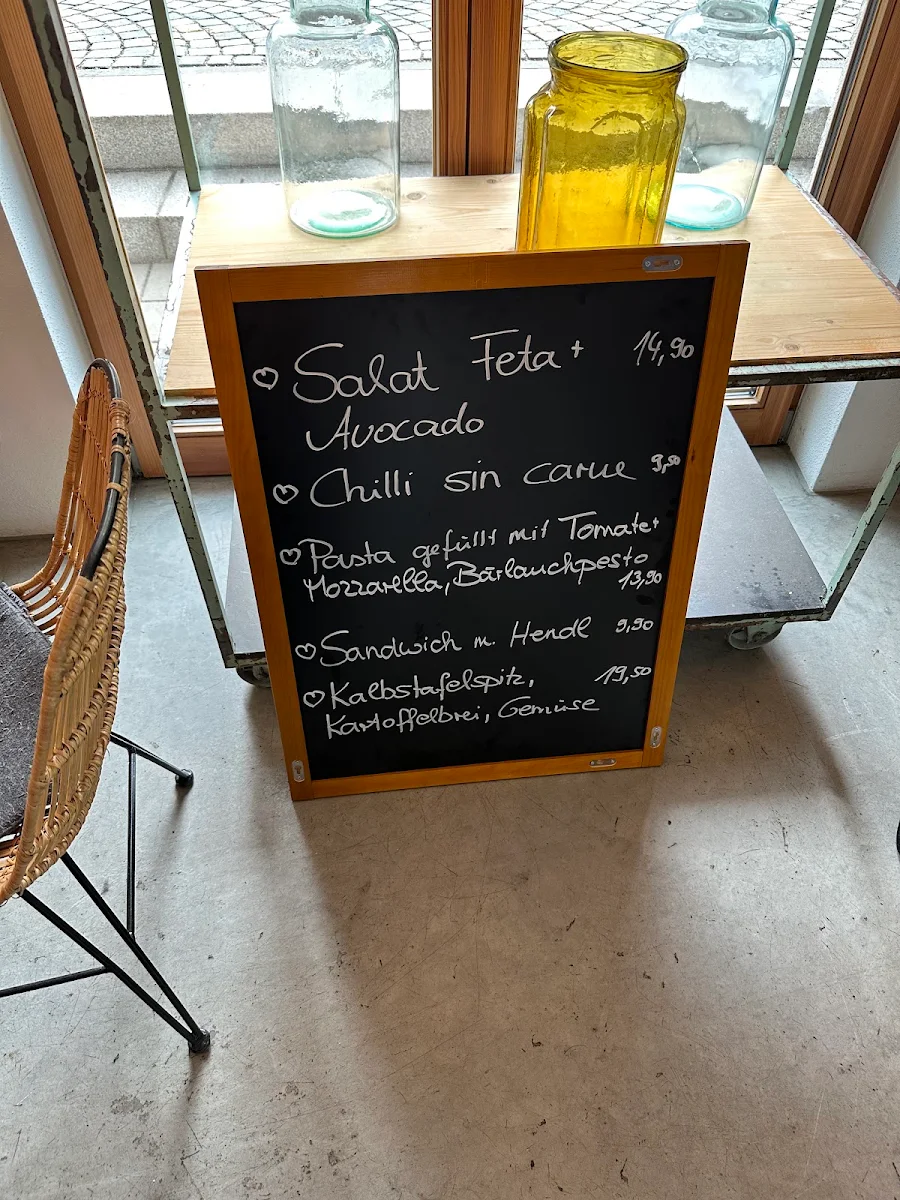 ♡ Salat Feta + 14,90
Avocado
♡ Chilli sin carne 9,50
♡ Pasta gefüllt mit Tomate+
Mozzarella, Bärlauchpesto
13,90
♡ Sandwich m. Hendl 9,90
♡ Kalbstafelspitz, 19,50
Kartoffelbrei, Gemüse